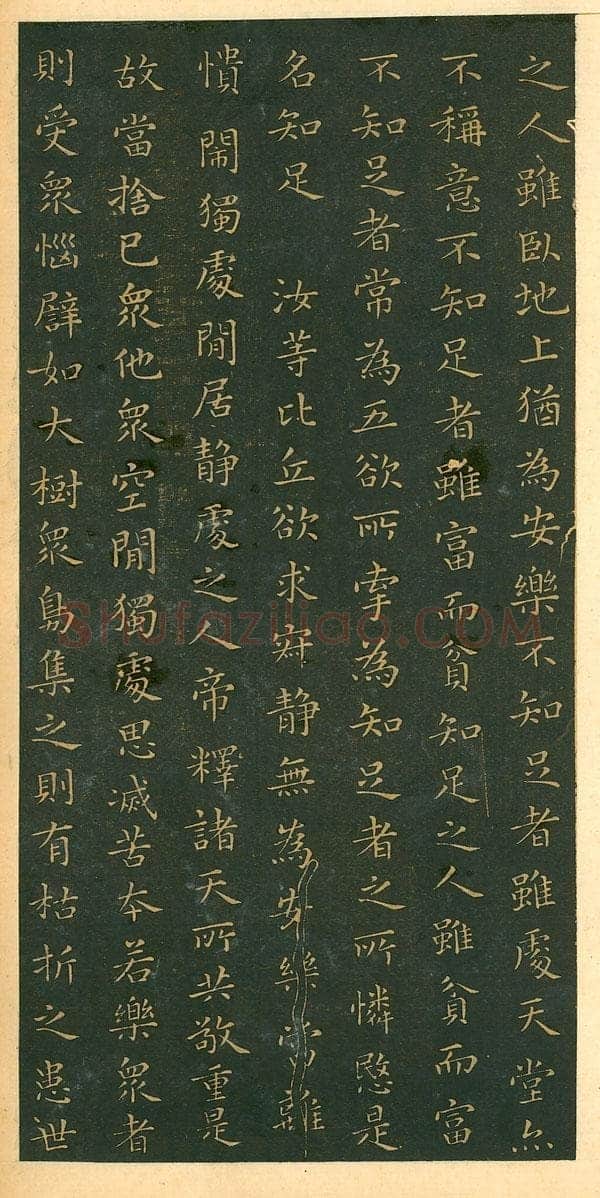 之人雖臥地上猶為安樂不知足者雖處天堂亦
不稱意不知足者雖富而貧知足之人雖貧而富
不知足者常為五欲所牽為知足者之所憐愍是
名知足 汝等比丘欲求寂靜無為安樂當離
憒閙獨處閒居静處之人帝釋諸天所共敬重是
故當捨已衆他衆空閒獨處思滅苦本若樂衆者
則受衆惱譬如大樹衆鳥集之則有枯折之患世
shufaziliao.COM